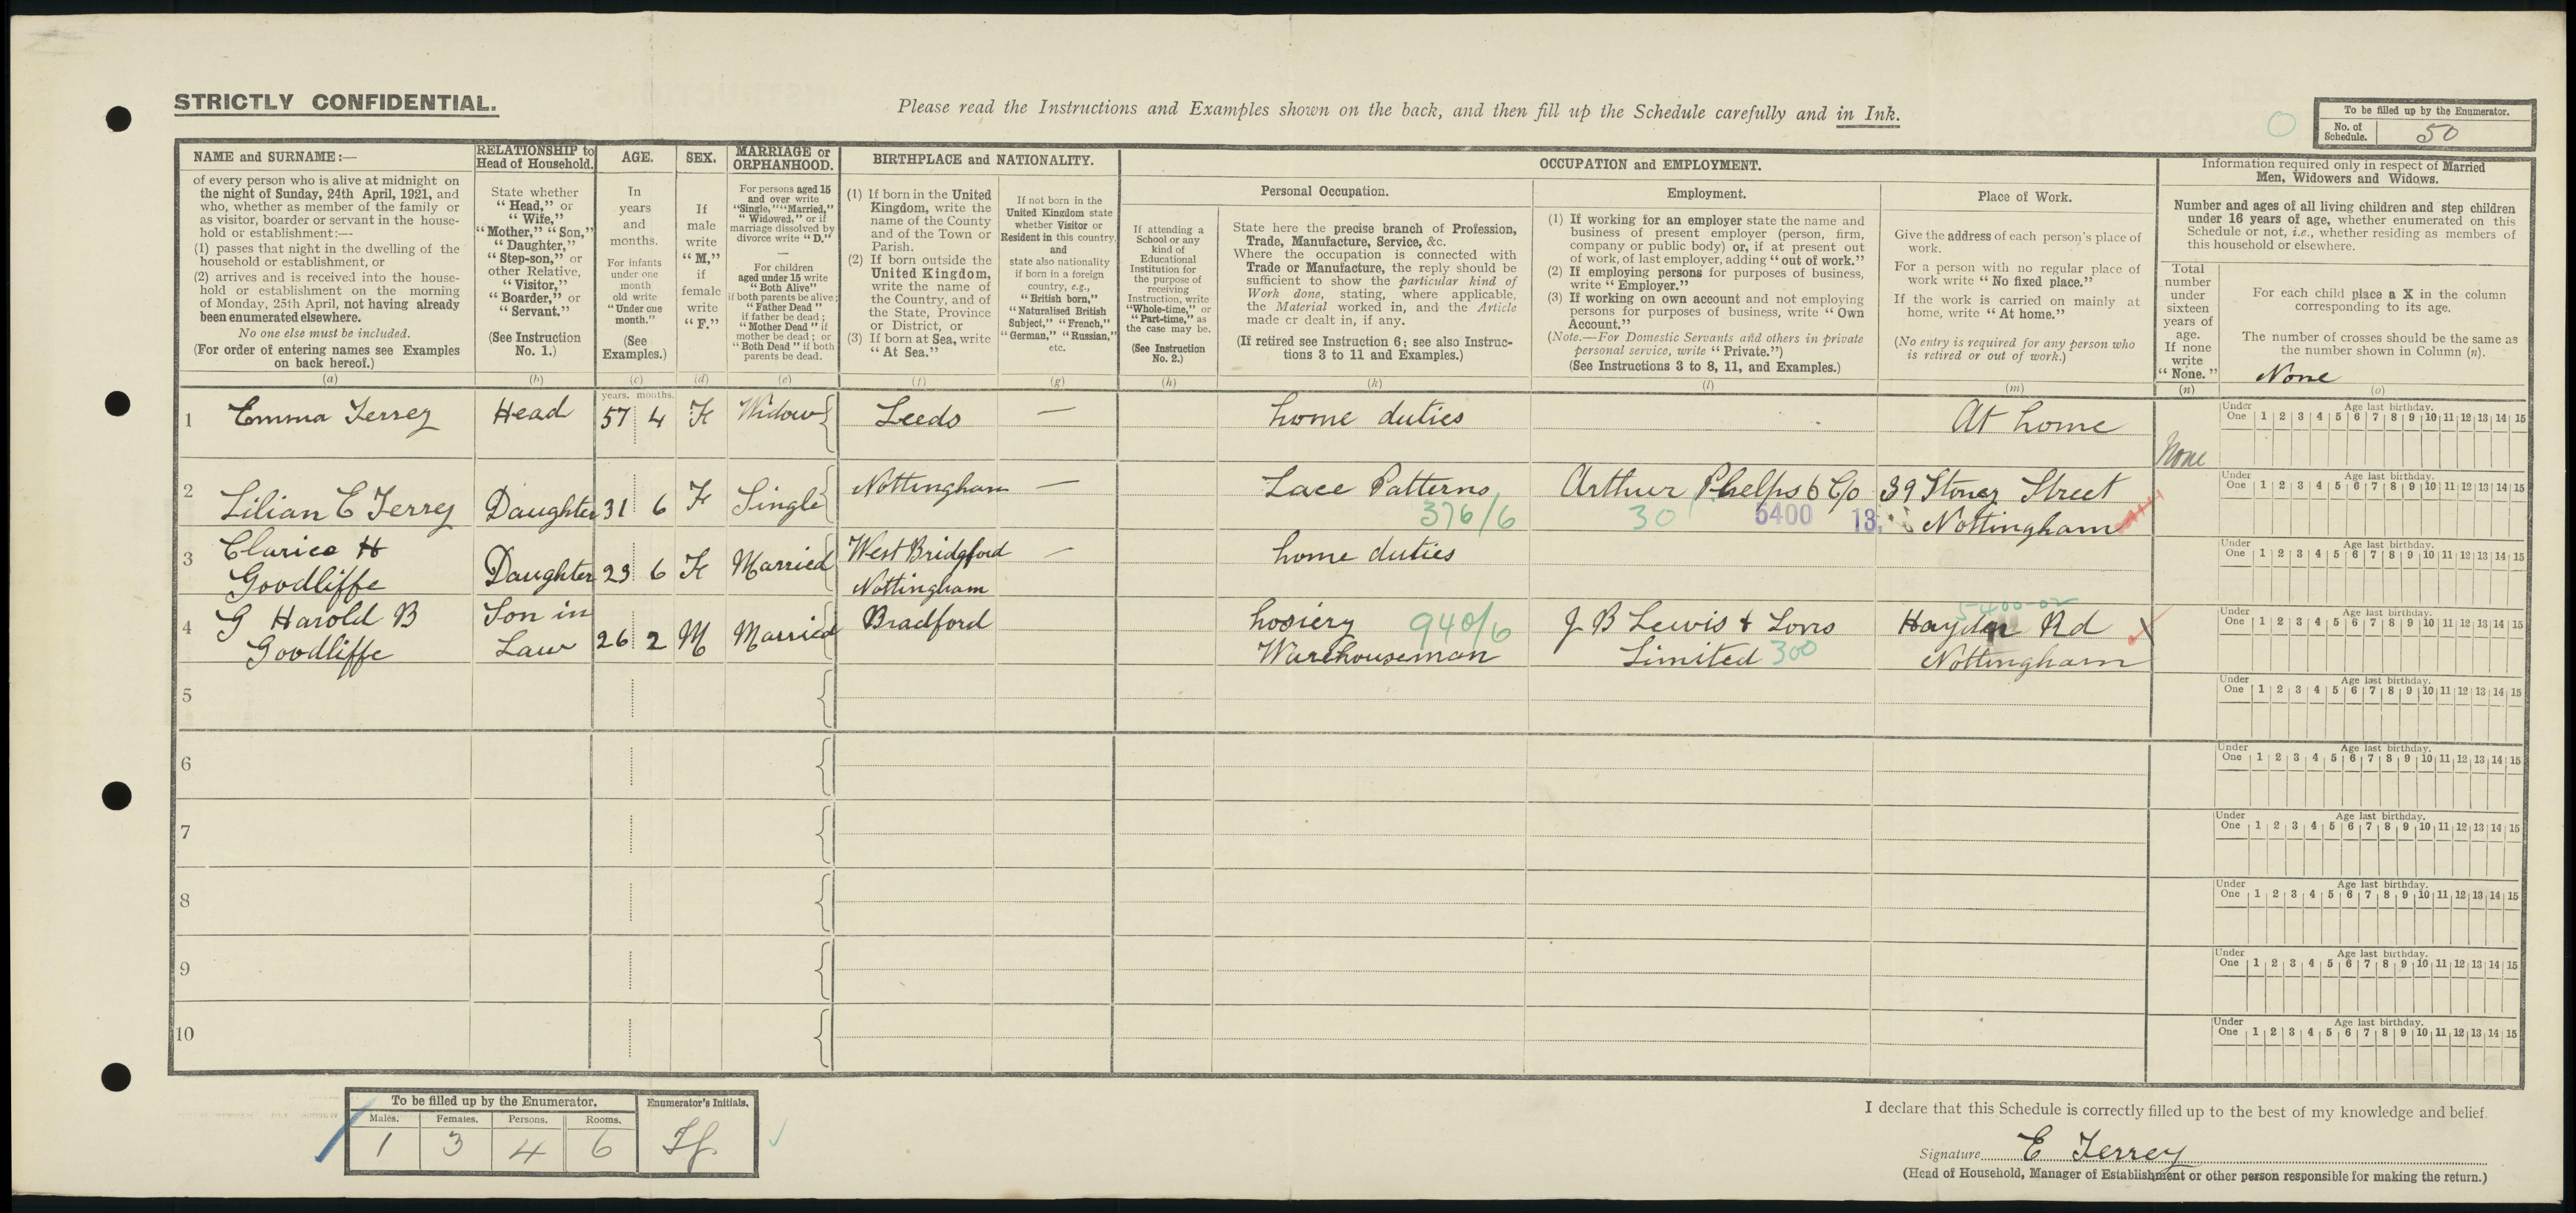 STRICTLY CONFIDENTIAL.
Please read the Instructions and Examples shown on the back, and then fill up the Schedule carefully and in Ink.
To be filled up by the Enumerator.
No. of Schedule. 50
NAME and SURNAME:—
of every person who is alive at midnight on
the night of Sunday, 24th April, 1921, and
who, whether as member of the family or
as visitor, boarder or servant in the house-
hold or establishment:—
(1) passes that night in the dwelling of the
household or establishment, or
(2) arrives and is received into the house-
hold or establishment on the morning
of Monday, 25th April, not having already
been enumerated elsewhere.
No one else must be included.
(For order of entering names see Examples
on back hereof.)
(a)
RELATIONSHIP to
Head of Household.
State whether
"Head," or
"Wife,"
"Mother," "Son,"
"Daughter,"
"Step-son," or
other Relative,
"Visitor,"
"Boarder," or
"Servant."
(See Instruction
No. 1.)
(b)
AGE.
In
years
and
months.
For infants
under one
month
old write
"Under one
month."
(See
Examples.)
(c)
SEX.
If
male
write
"M,"
if
female
write
"F."
(d)
MARRIAGE or
ORPHANHOOD.
For persons aged 15
and over write
"Single," "Married,"
"Widowed," or if
marriage dissolved by
divorce write "D."
—
For children
aged under 15 write
"Both Alive"
if both parents be alive;
"Father Dead"
if father be dead;
"Mother Dead" if
mother be dead; or
"Both Dead" if both
parents be dead.
(e)
BIRTHPLACE and NATIONALITY.
(1) If born in the United
Kingdom, write the
name of the County
and of the Town or
Parish.
(2) If born outside the
United Kingdom,
write the name of
the Country, and of
the State, Province
or District, or
(3) If born at Sea, write
"At Sea."
(f)
If not born in the
United Kingdom state
whether Visitor or
Resident in this country,
and
state also nationality
if born in a foreign
country, e.g.,
"British born,"
"Naturalised British
Subject," "French,"
"German," "Russian,"
etc.
(g)
OCCUPATION and EMPLOYMENT.
If attending a
School or any
kind of
Educational
Institution for
the purpose of
receiving
Instruction, write
"Whole-time," or
"Part-time," as
the case may be.
(See Instruction
No. 2.)
(h)
Personal Occupation.
State here the precise branch of Profession,
Trade, Manufacture, Service, &c.
Where the occupation is connected with
Trade or Manufacture, the reply should be
sufficient to show the particular kind of
Work done, stating, where applicable,
the Material worked in, and the Article
made or dealt in, if any.
(If retired see Instruction 6; see also Instruc-
tions 3 to 11 and Examples.)
(k)
Employment.
(1) If working for an employer state the name and
business of present employer (person, firm,
company or public body) or, if at present out
of work, of last employer, adding "out of work."
(2) If employing persons for purposes of business,
write "Employer."
(3) If working on own account and not employing
persons for purposes of business, write "Own
Account."
(Note.—For Domestic Servants and others in private
personal service, write "Private.")
(See Instructions 3 to 8, 11, and Examples.)
(l)
Place of Work.
Give the address of each person's place of
work.
For a person with no regular place of
work write "No fixed place."
If the work is carried on mainly at
home, write "At home."
(No entry is required for any person who
is retired or out of work.)
(m)
Information required only in respect of Married
Men, Widowers and Widows.
Number and ages of all living children and step children
under 16 years of age, whether enumerated on this
Schedule or not, i.e., whether residing as members of
this household or elsewhere.
Total
number
under
sixteen
years of
age.
If none
write
"None."
(n)
For each child place a X in the column
corresponding to its age.
The number of crosses should be the same as
the number shown in Column (n).
None
(o)
years. months.
1 Emma Terrey Head 57 4 F Widow Leeds — home duties At home None
Under One Age last birthday. 1 2 3 4 5 6 7 8 9 10 11 12 13 14 15
2 Lilian E Terrey Daughter 31 6 F Single Nottingham — Lace Patterns 376/6 Arthur Phelps & Co 30 6400 13 39 Stoney Street Nottingham
Under One Age last birthday. 1 2 3 4 5 6 7 8 9 10 11 12 13 14 15
3 Clarice H
Goodliffe Daughter 23 6 F Married West Bridgford
Nottingham — home duties
Under One Age last birthday. 1 2 3 4 5 6 7 8 9 10 11 12 13 14 15
4 G Harold B
Goodliffe Son in
Law 26 2 M Married Bradford hosiery 940/6
Warehouseman J B Lewis & Sons
Limited 300 Rd X
Nottingham
Under One Age last birthday. 1 2 3 4 5 6 7 8 9 10 11 12 13 14 15
5
Under One Age last birthday. 1 2 3 4 5 6 7 8 9 10 11 12 13 14 15
6
Under One Age last birthday. 1 2 3 4 5 6 7 8 9 10 11 12 13 14 15
7
Under One Age last birthday. 1 2 3 4 5 6 7 8 9 10 11 12 13 14 15
8
Under One Age last birthday. 1 2 3 4 5 6 7 8 9 10 11 12 13 14 15
9
Under One Age last birthday. 1 2 3 4 5 6 7 8 9 10 11 12 13 14 15
10
Under One Age last birthday. 1 2 3 4 5 6 7 8 9 10 11 12 13 14 15
To be filled up by the Enumerator.
Enumerator's Initials.
Males. Females. Persons. Rooms.
1 3 4 6
I declare that this Schedule is correctly filled up to the best of my knowledge and belief.
Signature E Terrey
(Head of Household, Manager of Establishment or other person responsible for making the return.)